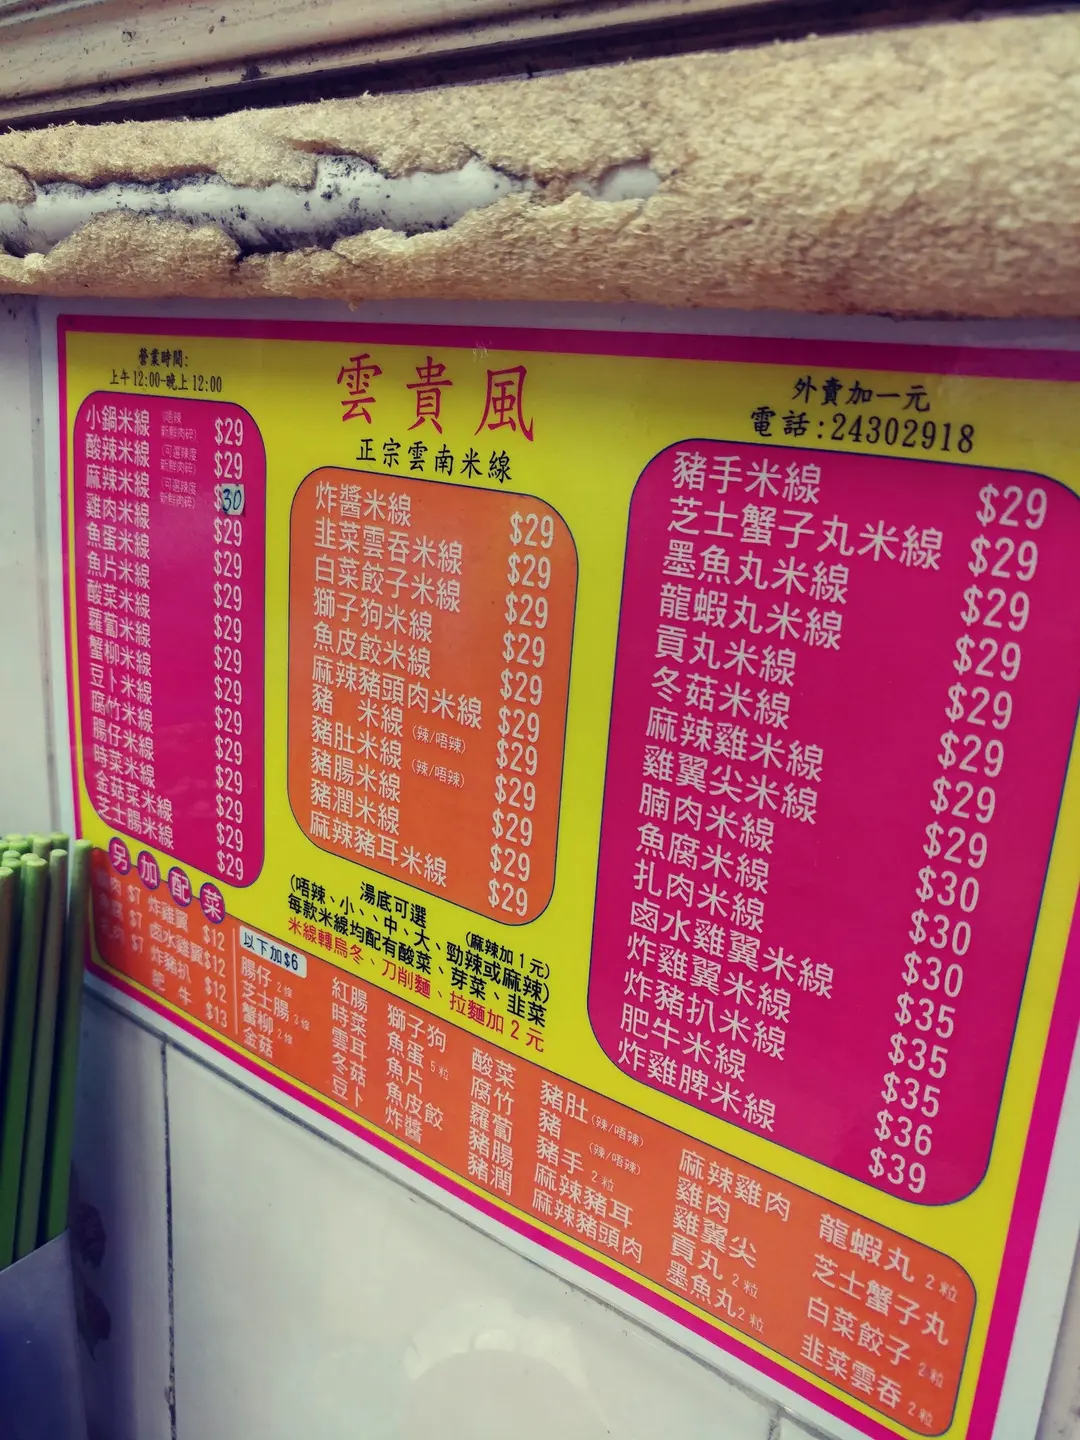 營業時間:
上午12:00-晚上12:00
雲貴風
正宗雲南米線
外賣加一元
電話:24302918
小鍋米線 (唔辣 新鮮肉碎) $29
酸辣米線 (可選辣度 新鮮肉碎) $29
麻辣米線 (可選辣度 新鮮肉碎) $30
雞肉米線 $29
魚蛋米線 $29
魚片米線 $29
酸菜米線 $29
蘿蔔米線 $29
蟹柳米線 $29
豆卜米線 $29
腐竹米線 $29
腸仔米線 $29
時菜米線 $29
金菇菜米線 $29
芝士腸米線 $29
炸醬米線 $29
韭菜雲吞米線 $29
白菜餃子米線 $29
獅子狗米線 $29
魚皮餃米線 $29
麻辣豬頭肉米線 $29
豬 米線 (辣/唔辣) $29
豬肚米線 (辣/唔辣) $29
豬腸米線 $29
豬潤米線 $29
麻辣豬耳米線 $29
豬手米線 $29
芝士蟹子丸米線 $29
墨魚丸米線 $29
龍蝦丸米線 $29
貢丸米線 $29
冬菇米線 $29
麻辣雞米線 $29
雞翼尖米線 $29
腩肉米線 $30
魚腐米線 $30
扎肉米線 $30
鹵水雞翼米線 $35
炸雞翼米線 $35
炸豬扒米線 $35
肥牛米線 $36
炸雞脾米線 $39
湯底可選 (麻辣加1元)
(唔辣、小、、中、大、勁辣或麻辣)
每款米線均配有酸菜、芽菜、韭菜
米線轉烏冬、刀削麵、拉麵加2元
另加配菜
肉 $7
$7
肉 $7
炸雞翼 $12
鹵水雞翼 $12
炸豬扒 $12
肥牛 $13
以下加$6
腸仔 2條
芝士腸 3條
蟹柳 2條
金菇
紅腸
時菜
雲耳
冬菇
豆卜
獅子狗
魚蛋 5粒
魚片
魚皮餃
炸醬
酸菜
腐竹
蘿蔔
豬腸
豬潤
豬肚 (辣/唔辣)
豬 (辣/唔辣)
豬手 2粒
麻辣豬耳
麻辣豬頭肉
麻辣雞肉
雞肉
雞翼尖
貢丸 2粒
墨魚丸 2粒
龍蝦丸 2粒
芝士蟹子丸
白菜餃子 2粒
韭菜雲吞 2粒